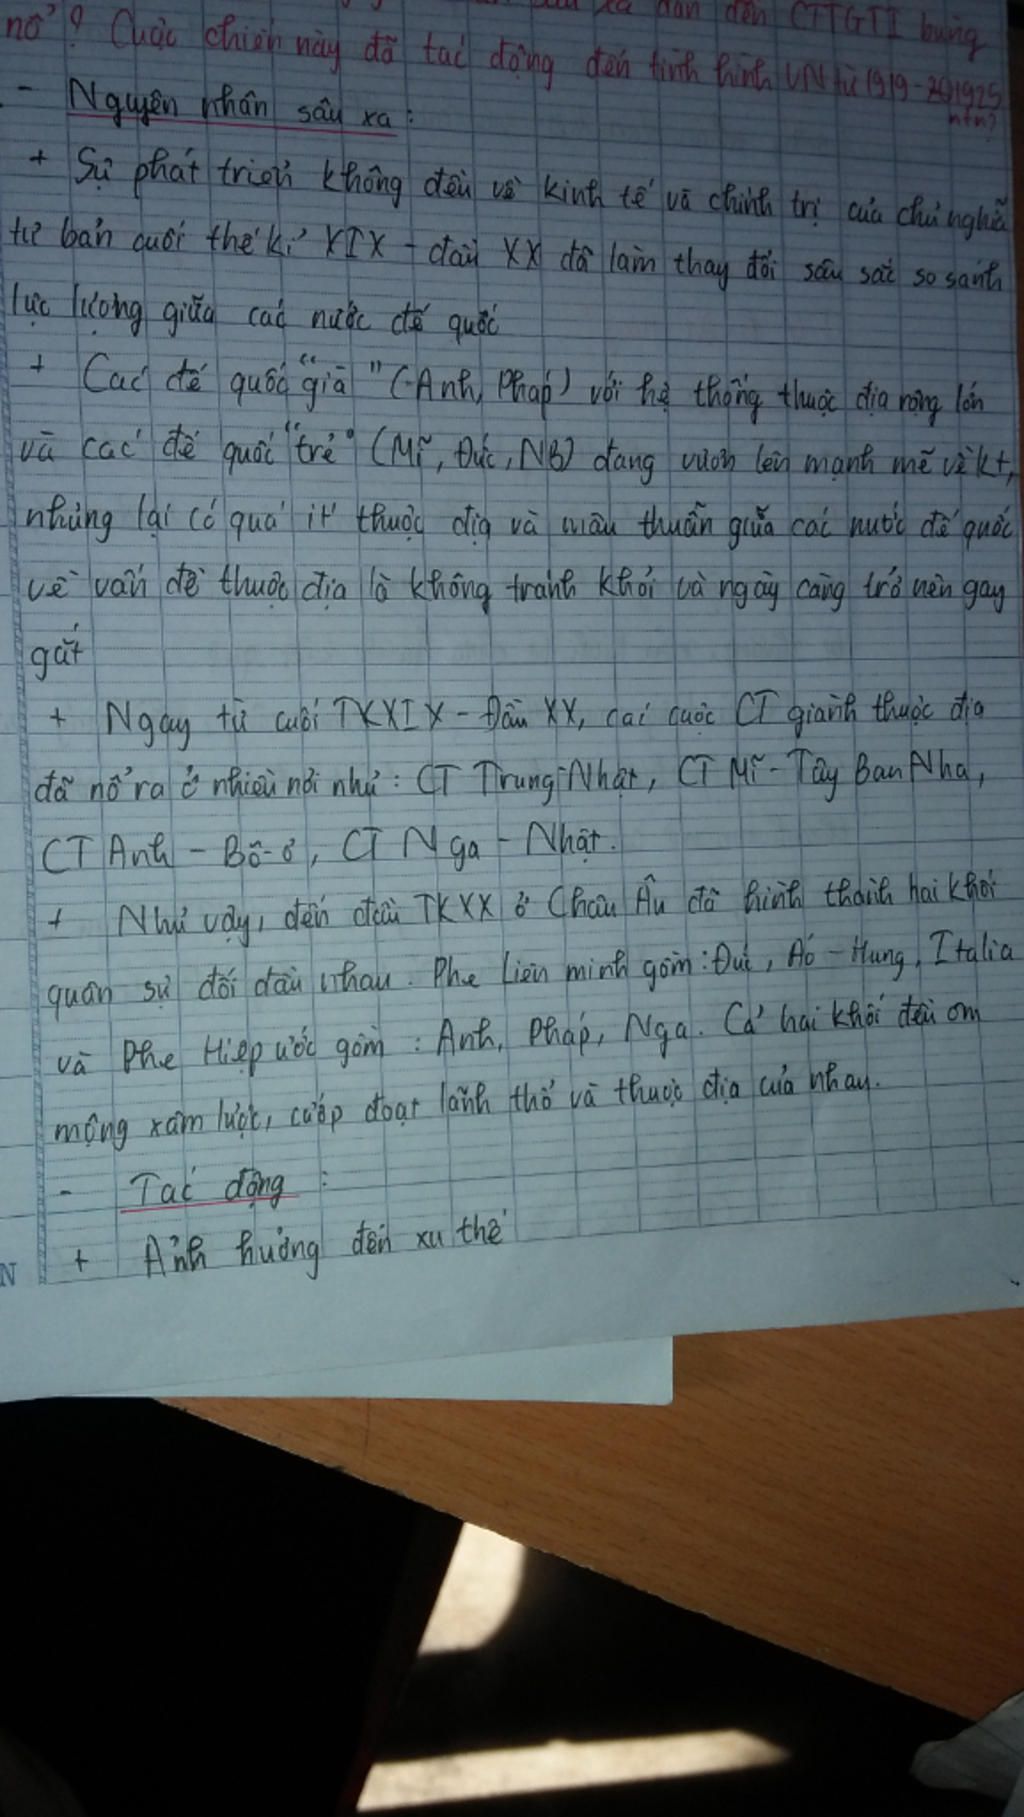 xa dẫn đến CTTGTI bùng
nổ? Cuộc chiến này đã tác động đến tình hình VN từ 1919-1925
ntn?
- Nguyên nhân sâu xa:
+ Sự phát triển không đều về kinh tế và chính trị của chủ nghĩa
tư bản cuối thế kỉ XIX - đầu XX đã làm thay đổi sâu sắc so sánh
lực lượng giữa các nước đế quốc
+ Các đế quốc "già" (Anh, Pháp) với hệ thống thuộc địa rộng lớn
và các đế quốc "trẻ" (Mĩ, Đức, NB) đang vươn lên mạnh mẽ về kt,
nhưng lại có quá ít thuộc địa và mâu thuẫn giữa các nước đế quốc
về vấn đề thuộc địa là không tránh khỏi và ngày càng trở nên gay
gắt
+ Ngay từ cuối TKXIX - Đầu XX, các cuộc CT giành thuộc địa
đã nổ ra ở nhiều nơi như: CT Trung-Nhật, CT Mĩ - Tây Ban Nha,
CT Anh - Bô-ơ, CT Nga - Nhật.
+ Như vậy, đến đầu TKXX ở Châu Âu đã hình thành hai khối
quân sự đối đầu nhau. Phe Liên minh gồm: Đức, Áo - Hung, Italia
và Phe Hiệp ước gồm: Anh, Pháp, Nga. Cả hai khối đều ôm
mộng xâm lược, cướp đoạt lãnh thổ và thuộc địa của nhau.
- Tác động:
+ Ảnh hưởng đến xu thế
N